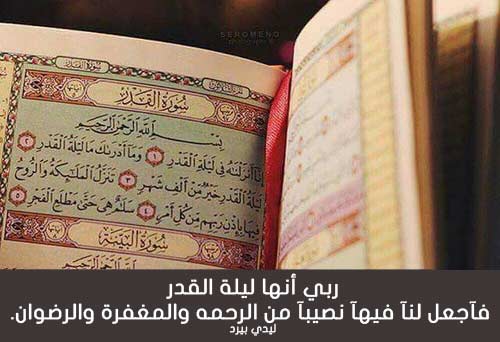 SEROMENO
سُورَةُ القَدْرِ
بِسْمِ اللَّهِ الرَّحْمَٰنِ الرَّحِيمِ
إِنَّا أَنزَلْنَٰهُ فِي لَيْلَةِ القَدْرِ ١ وَمَا أَدْرَىٰكَ مَا لَيْلَةُ القَدْرِ ٢
لَيْلَةُ القَدْرِ خَيْرٌ مِّنْ أَلْفِ شَهْرٍ ٣ تَنَزَّلُ المَلَٰٓئِكَةُ وَالرُّوحُ
فِيهَا بِإِذْنِ رَبِّهِم مِّن كُلِّ أَمْرٍ ٤ سَلَٰمٌ هِيَ حَتَّىٰ مَطْلَعِ الفَجْرِ ٥
سُورَةُ البَيِّنَةِ
بِسْمِ اللَّهِ الرَّحْمَٰنِ الرَّحِيمِ
ربي أنها ليلة القدر
فآجعل لنآ فيهآ نصيبآ من الرحمه والمغفرة والرضوان.
ليدي بيرد